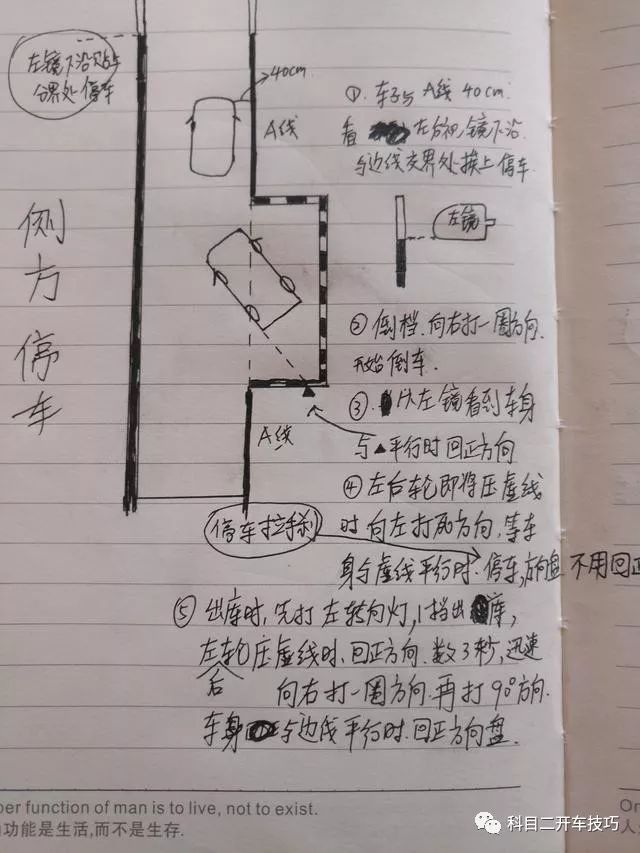 左镜下沿与
分界处停车
40cm
A线
侧方停车
① 车子与A线40cm.
看 左后视镜下沿
与边线交界处挨上停车
左镜
② 倒档.向右打一圈方向.
开始倒车.
③ 从左镜看到车身
与▲平行时回正方向
A线
④ 左后轮即将压虚线
时向左打死方向,等车
身与虚线平行时.停车,方向盘不用回正
停车拉手刹
⑤ 出库时,先打左转向灯,1挡出库,
左后轮压虚线时,回正方向.数3秒,迅速
向右打一圈方向.再打90°方向.
车身与边线平行时.回正方向盘.
per function of man is to live, not to exist.
功能是生活,而不是生存.
Or
人
科目二开车技巧